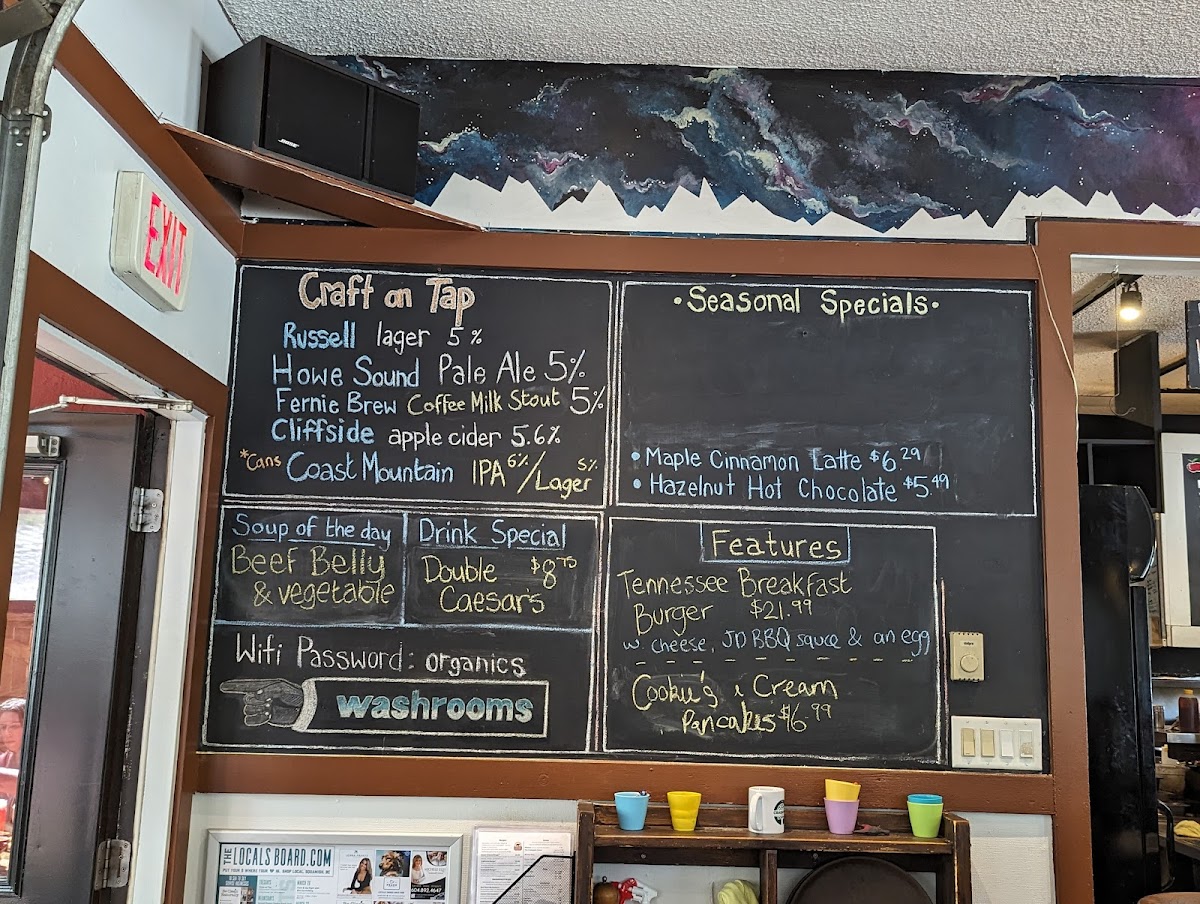 EXIT
Craft on Tap
Russell lager 5%
Howe Sound Pale Ale 5%
Fernie Brew Coffee Milk Stout 5%
Cliffside apple cider 5.6%
*Cans Coast Mountain IPA 6%/Lager 5%
•Seasonal Specials•
• Maple Cinnamon Latte $6.29
• Hazelnut Hot Chocolate $5.49
Soup of the day
Beef Belly
& vegetable
Drink Special
Double $8.75
Caesar's
Wifi Password: organics
washrooms
Features
Tennessee Breakfast
Burger $21.99
w cheese, JD BBQ sauce & an egg
Cookie's & Cream
Pancakes $16.99
THE LOCALS BOARD.COM
604.892.4647